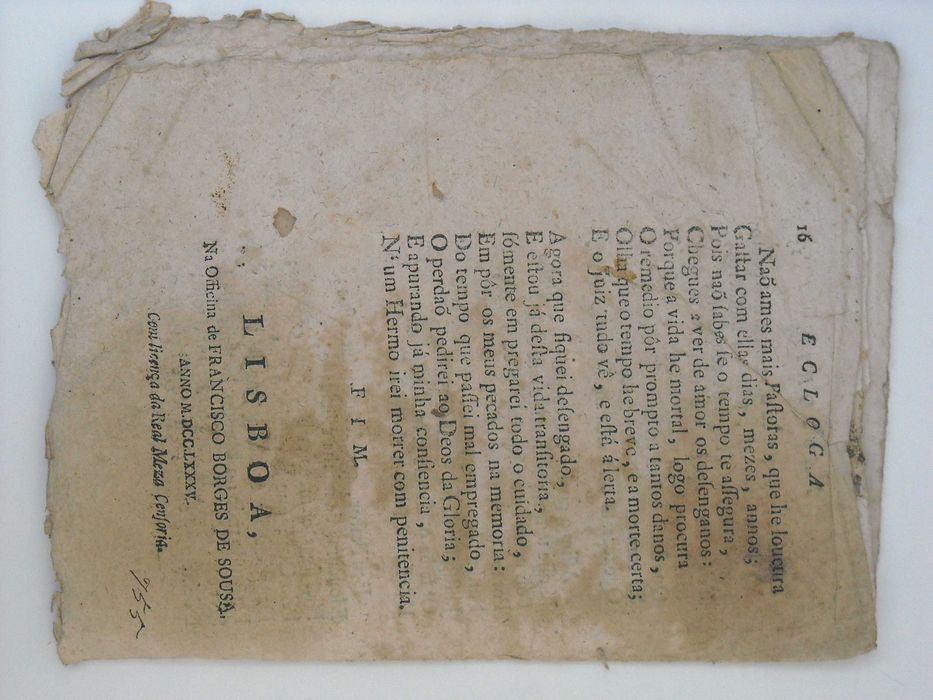 16 ECLOGA
Naõ ames mais Paſtoras, que he loucura
Gaſtar com ellas dias, mezes, annos;
Pois naõ ſabes ſe o tempo te aſſegura,
Chegues a ver de amor os deſenganos:
Porque a vida he mortal, logo procura
O remedio pôr prompto a tantos danos,
Olha que o tempo he breve, e a morte certa;
E o juiz tudo vê, e eſtá álerta.
Agora que fiquei deſengado,
E eſtou já deſta vida tranſitoria,
ſómente em pregarei todo o cuidado,
Em pôr os meus pecados na memoria:
Do tempo que paſſei mal empregado,
O perdaõ pedirei ao Deos da Gloria;
E apurando já minha conſiencia,
N'um Hermo irei morrer com penitencia.
FIM.
LISBOA,
Na Officina de FRANCISCO BORGES DE SOUSA.
ANNO M.DCC.LXXXV.
Com licença da Real Meza Cenſoria.